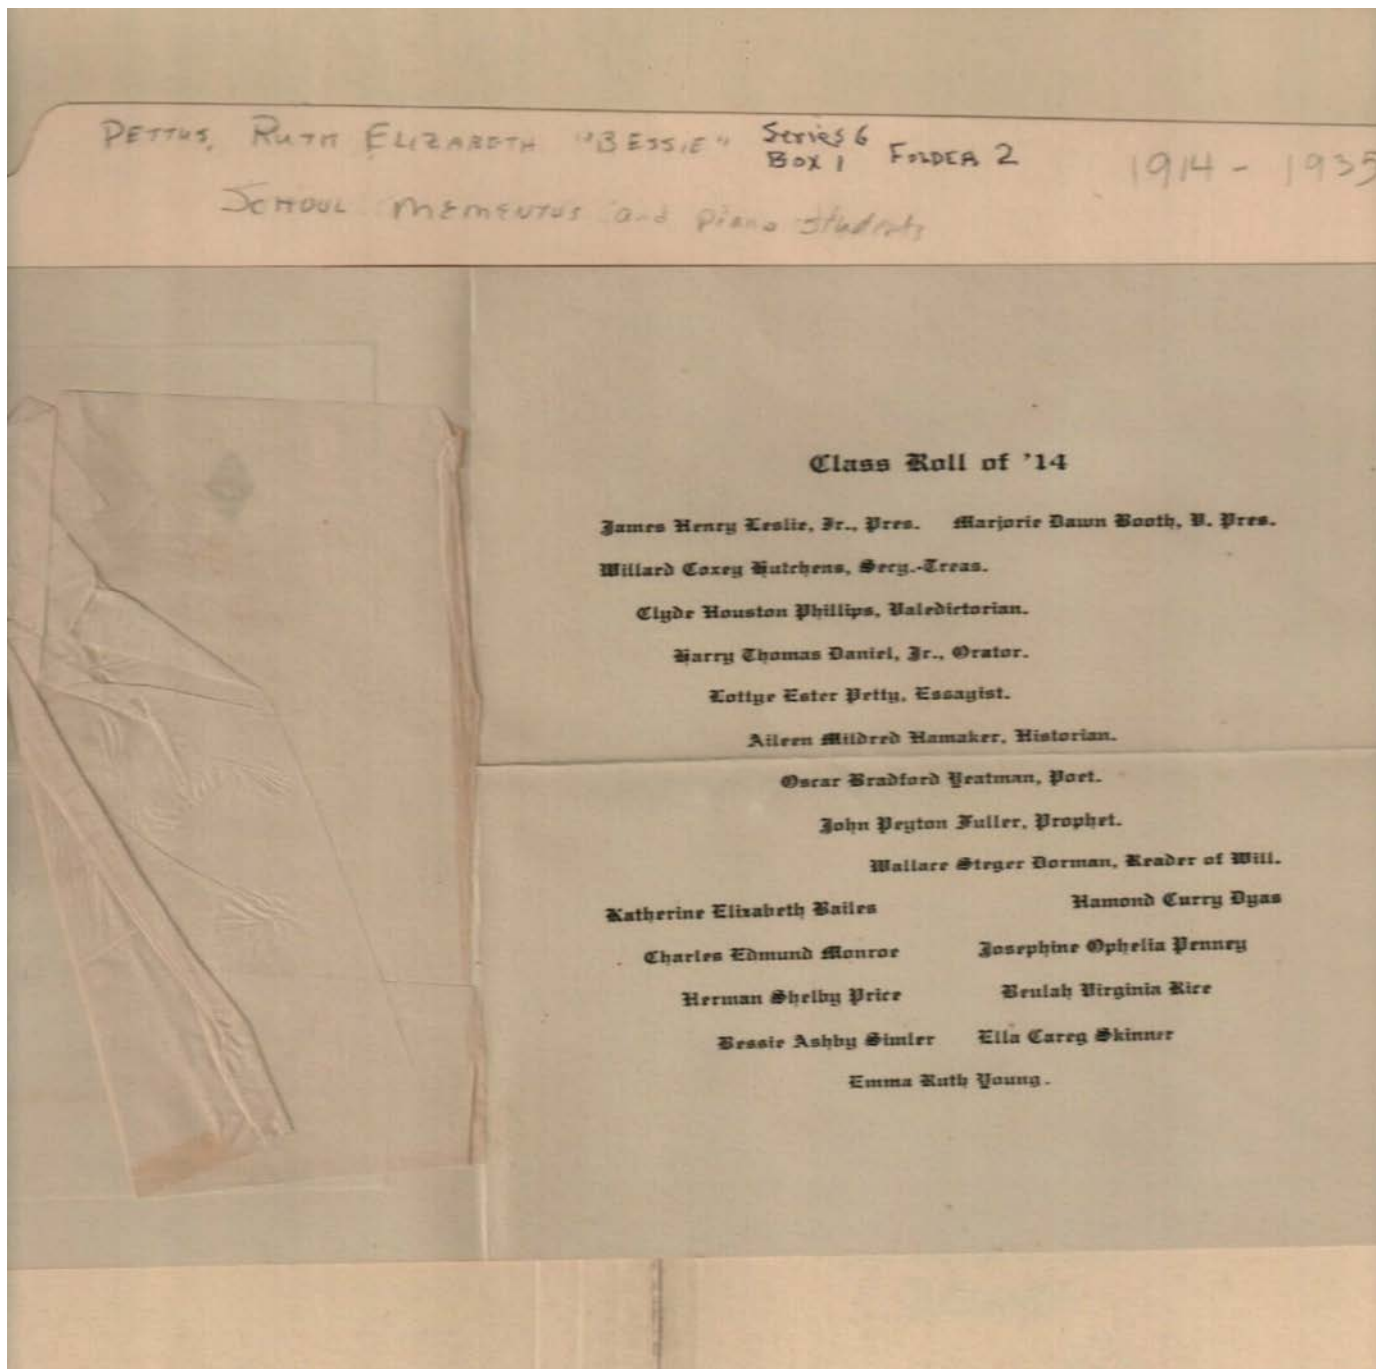 PETTUS, RUTH ELIZABETH "BESSIE" Series 6
BOX 1 FOLDER 2 1914 - 1935
SCHOOL MEMENTOS and piano students
Class Roll of '14
James Henry Leslie, Jr., Pres. Marjorie Dawn Booth, V. Pres.
Willard Coxey Hutchens, Secy.-Treas.
Clyde Houston Phillips, Valedictorian.
Harry Thomas Daniel, Jr., Orator.
Lottye Ester Petty, Essayist.
Aileen Mildred Hamaker, Historian.
Oscar Bradford Yeatman, Poet.
John Peyton Fuller, Prophet.
Wallace Steger Dorman, Reader of Will.
Katherine Elizabeth Bailes Hamond Curry Dyas
Charles Edmund Monroe Josephine Ophelia Penney
Herman Shelby Price Beulah Virginia Rice
Bessie Ashby Simler Ella Careg Skinner
Emma Ruth Young.